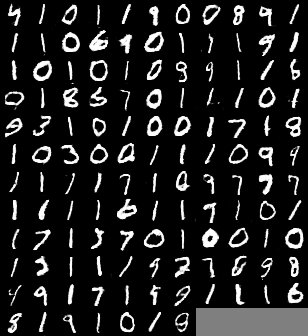 4 1 0 1 1 9 0 0 8 9 1
1 1 0 6 9 0 1 1 1 9 1
1 0 1 0 1 0 9 9 1 1 6
0 1 8 5 7 0 1 1 1 0 1
9 3 1 0 1 0 0 1 7 1 8
1 0 3 0 0 1 1 1 0 9 9
1 1 1 1 7 1 0 9 7 7 7
1 1 1 1 6 1 1 9 1 0 1
1 7 1 3 7 0 1 0 0 1 0
1 3 1 1 1 9 2 7 8 9 8
4 9 1 7 1 8 9 1 1 1 6
8 1 9 1 0 1 9